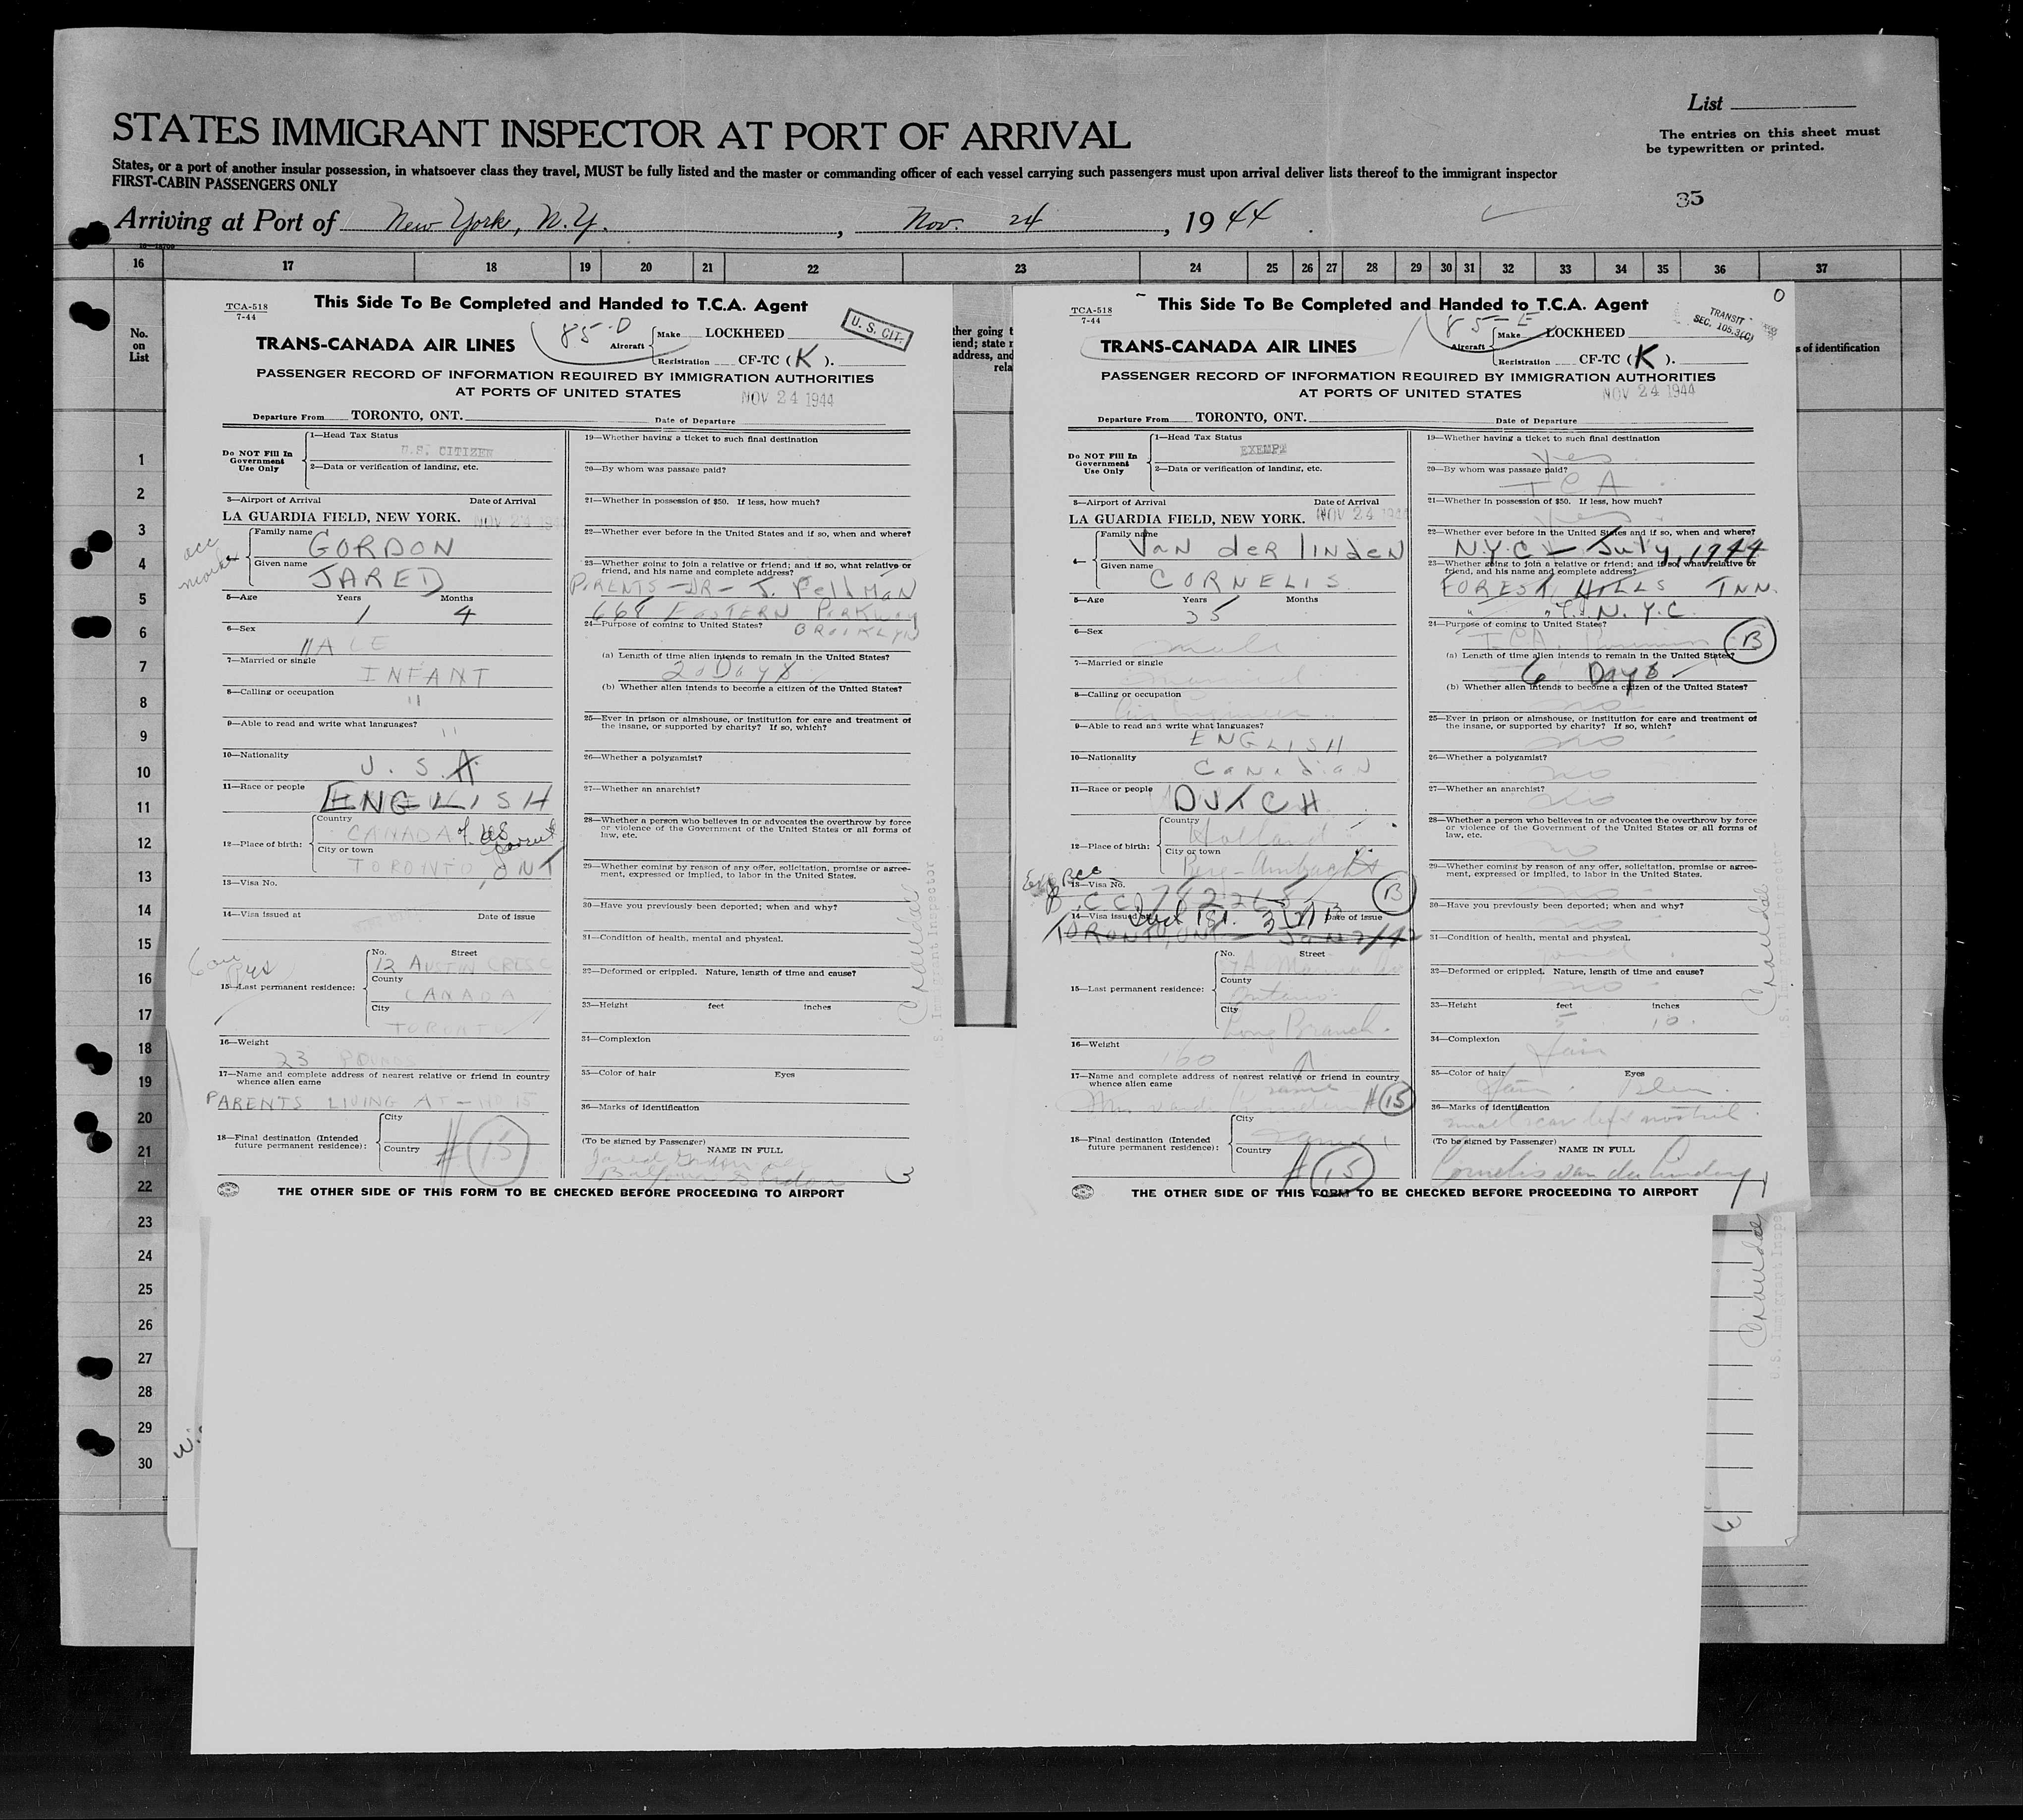 List
The entries on this sheet must
be typewritten or printed.
STATES IMMIGRANT INSPECTOR AT PORT OF ARRIVAL
States, or a port of another insular possession, in whatsoever class they travel, MUST be fully listed and the master or commanding officer of each vessel carrying such passengers must upon arrival deliver lists thereof to the immigrant inspector
FIRST-CABIN PASSENGERS ONLY
35
Arriving at Port of New York, N.Y., Nov. 24, 1944
16 17 18 19 20 21 22 23 24 25 26 27 28 29 30 31 32 33 34 35 36 37
No.
on
List
s of identification
1
2
3
4
5
6
7
8
9
10
11
12
13
14
15
16
17
18
19
20
21
22
23
24
25
26
27
28
29
30
TCA-518
7-44
This Side To Be Completed and Handed to T.C.A. Agent
U. S. CIT.
85-D
TRANS-CANADA AIR LINES
Aircraft Make LOCKHEED
Registration CF-TC (K).
PASSENGER RECORD OF INFORMATION REQUIRED BY IMMIGRATION AUTHORITIES
AT PORTS OF UNITED STATES
NOV 24 1944
Departure From TORONTO, ONT. Date of Departure
Do NOT Fill In
Government
Use Only
1—Head Tax Status
U.S. CITIZEN
2—Data or verification of landing, etc.
3—Airport of Arrival Date of Arrival
LA GUARDIA FIELD, NEW YORK. NOV 24 194
acc
Family name
GORDON
Given name
JARED
5—Age Years Months
1 4
6—Sex
MALE
7—Married or single
INFANT
8—Calling or occupation
"
9—Able to read and write what languages?
"
10—Nationality
U. S. A.
11—Race or people
ENGLISH
12—Place of birth: Country
CANADA of US parent
City or town
TORONTO, ONT
13—Visa No.
14—Visa issued at Date of issue
15—Last permanent residence: No. Street
12 AUSTIN CRESC
County
CANADA
City
TORONTO
16—Weight
23 POUNDS
17—Name and complete address of nearest relative or friend in country
whence alien came
PARENTS LIVING AT - NO 15
18—Final destination (Intended
future permanent residence): City
Country
# 15
19—Whether having a ticket to such final destination
20—By whom was passage paid?
21—Whether in possession of $50. If less, how much?
22—Whether ever before in the United States and if so, when and where?
23—Whether going to join a relative or friend; and if so, what relative or
friend, and his name and complete address?
PARENTS - DR - J. PELLMAN
668 EASTERN PARKWAY
BROOKLYN
24—Purpose of coming to United States?
(a) Length of time alien intends to remain in the United States?
20 Days
(b) Whether alien intends to become a citizen of the United States?
25—Ever in prison or almshouse, or institution for care and treatment of
the insane, or supported by charity? If so, which?
26—Whether a polygamist?
27—Whether an anarchist?
28—Whether a person who believes in or advocates the overthrow by force
or violence of the Government of the United States or all forms of
law, etc.
29—Whether coming by reason of any offer, solicitation, promise or agree-
ment, expressed or implied, to labor in the United States.
30—Have you previously been deported; when and why?
31—Condition of health, mental and physical.
32—Deformed or crippled. Nature, length of time and cause?
33—Height feet inches
34—Complexion
35—Color of hair Eyes
36—Marks of identification
(To be signed by Passenger)
NAME IN FULL
Jared Gordon
Balfour Gordon
THE OTHER SIDE OF THIS FORM TO BE CHECKED BEFORE PROCEEDING TO AIRPORT
TCA-518
7-44
This Side To Be Completed and Handed to T.C.A. Agent
TRANSIT
SEC. 105.3(C)
85-E
TRANS-CANADA AIR LINES
Aircraft Make LOCKHEED
Registration CF-TC (K).
PASSENGER RECORD OF INFORMATION REQUIRED BY IMMIGRATION AUTHORITIES
AT PORTS OF UNITED STATES
NOV 24 1944
Departure From TORONTO, ONT. Date of Departure
Do NOT Fill In
Government
Use Only
1—Head Tax Status
EXEMPT
2—Data or verification of landing, etc.
3—Airport of Arrival Date of Arrival
LA GUARDIA FIELD, NEW YORK. NOV 24 1944
4— Family name
Van der linden
Given name
CORNELIS
5—Age Years Months
35
6—Sex
male
7—Married or single
married
8—Calling or occupation
9—Able to read and write what languages?
ENGLISH
10—Nationality
Canadian
11—Race or people
DUTCH
12—Place of birth: Country
Holland
City or town
Berg-Ambacht
13—Visa No.
B.C.C. 742265
B
14—Visa issued at Date of issue
TORONTO, ONT
15—Last permanent residence: No. Street
County
Ontario
City
Long Branch.
16—Weight
160
17—Name and complete address of nearest relative or friend in country
whence alien came
same
# 15
18—Final destination (Intended
future permanent residence): City
same
Country
# 15
19—Whether having a ticket to such final destination
Yes
20—By whom was passage paid?
TCA
21—Whether in possession of $50. If less, how much?
Yes
22—Whether ever before in the United States and if so, when and where?
N.Y.C - July, 1944
23—Whether going to join a relative or friend; and if so, what relative or
friend, and his name and complete address?
FOREST HILLS INN.
" " N.Y.C.
24—Purpose of coming to United States?
TCA
B
(a) Length of time alien intends to remain in the United States?
6 Days
(b) Whether alien intends to become a citizen of the United States?
no
25—Ever in prison or almshouse, or institution for care and treatment of
the insane, or supported by charity? If so, which?
no
26—Whether a polygamist?
no
27—Whether an anarchist?
no
28—Whether a person who believes in or advocates the overthrow by force
or violence of the Government of the United States or all forms of
law, etc.
no
29—Whether coming by reason of any offer, solicitation, promise or agree-
ment, expressed or implied, to labor in the United States.
no
30—Have you previously been deported; when and why?
no
31—Condition of health, mental and physical.
good
32—Deformed or crippled. Nature, length of time and cause?
no
33—Height feet inches
5 10.
34—Complexion
fair
35—Color of hair Eyes
fair. Blue
36—Marks of identification
small scar left nostril.
(To be signed by Passenger)
NAME IN FULL
Cornelis van der Linden
THE OTHER SIDE OF THIS FORM TO BE CHECKED BEFORE PROCEEDING TO AIRPORT